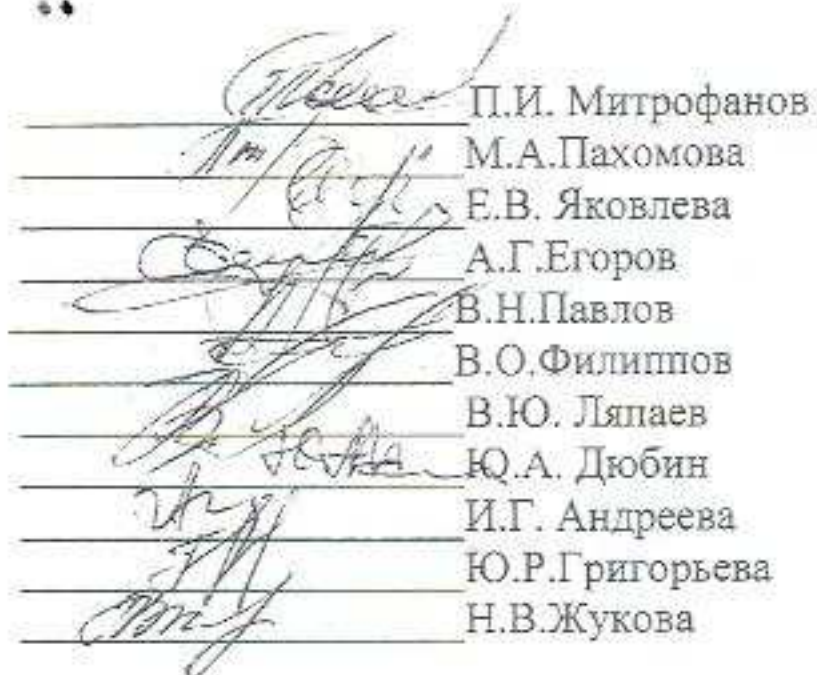 П.И. Митрофанов
М.А.Пахомова
Е.В. Яковлева
А.Г.Егоров
В.Н.Павлов
В.О.Филиппов
В.Ю. Ляпаев
Ю.А. Дюбин
И.Г. Андреева
Ю.Р.Григорьева
Н.В.Жукова